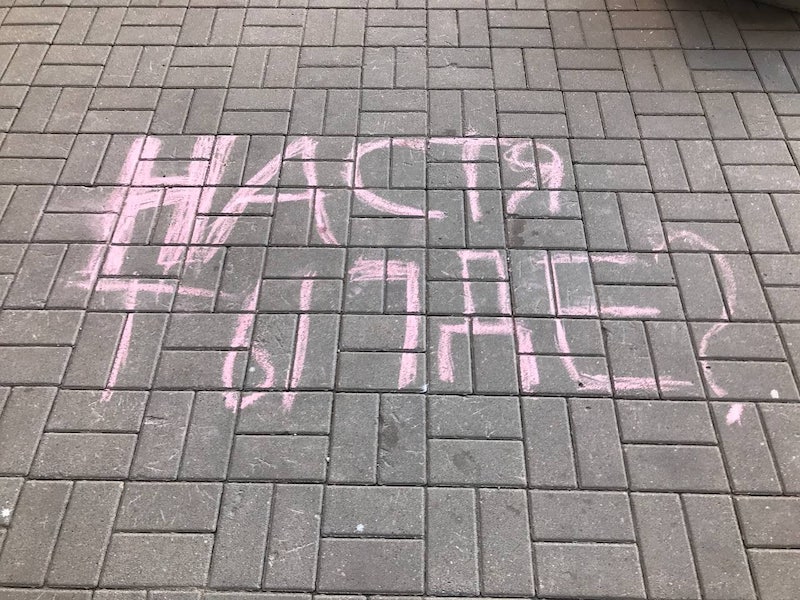 НАСТЯ
ТЫ ГДЕ?